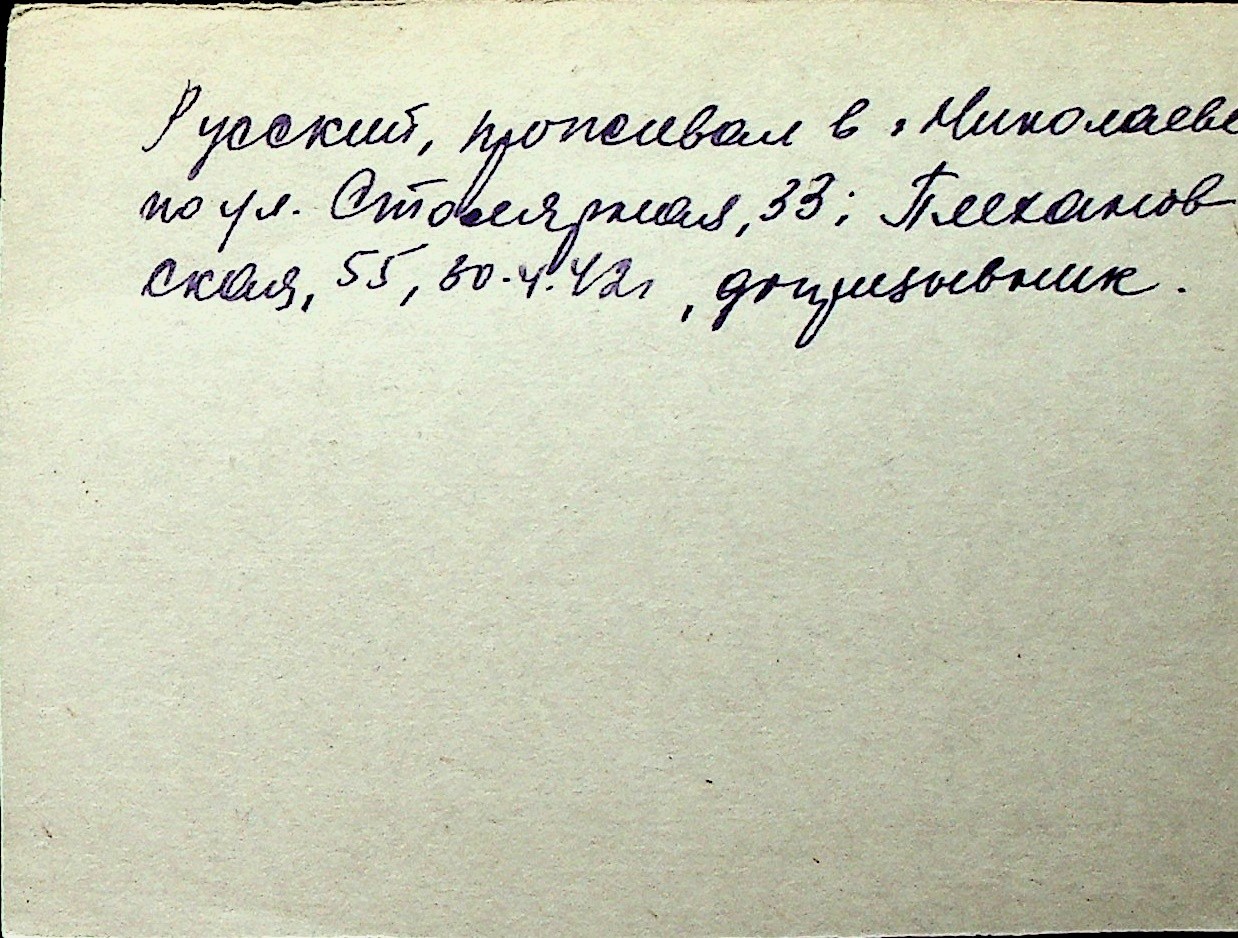 Русский, проживал в г. Николаеве
по ул. Столярная, 33; Плеханов
ская, 55, 30.4.42г, допризывник.